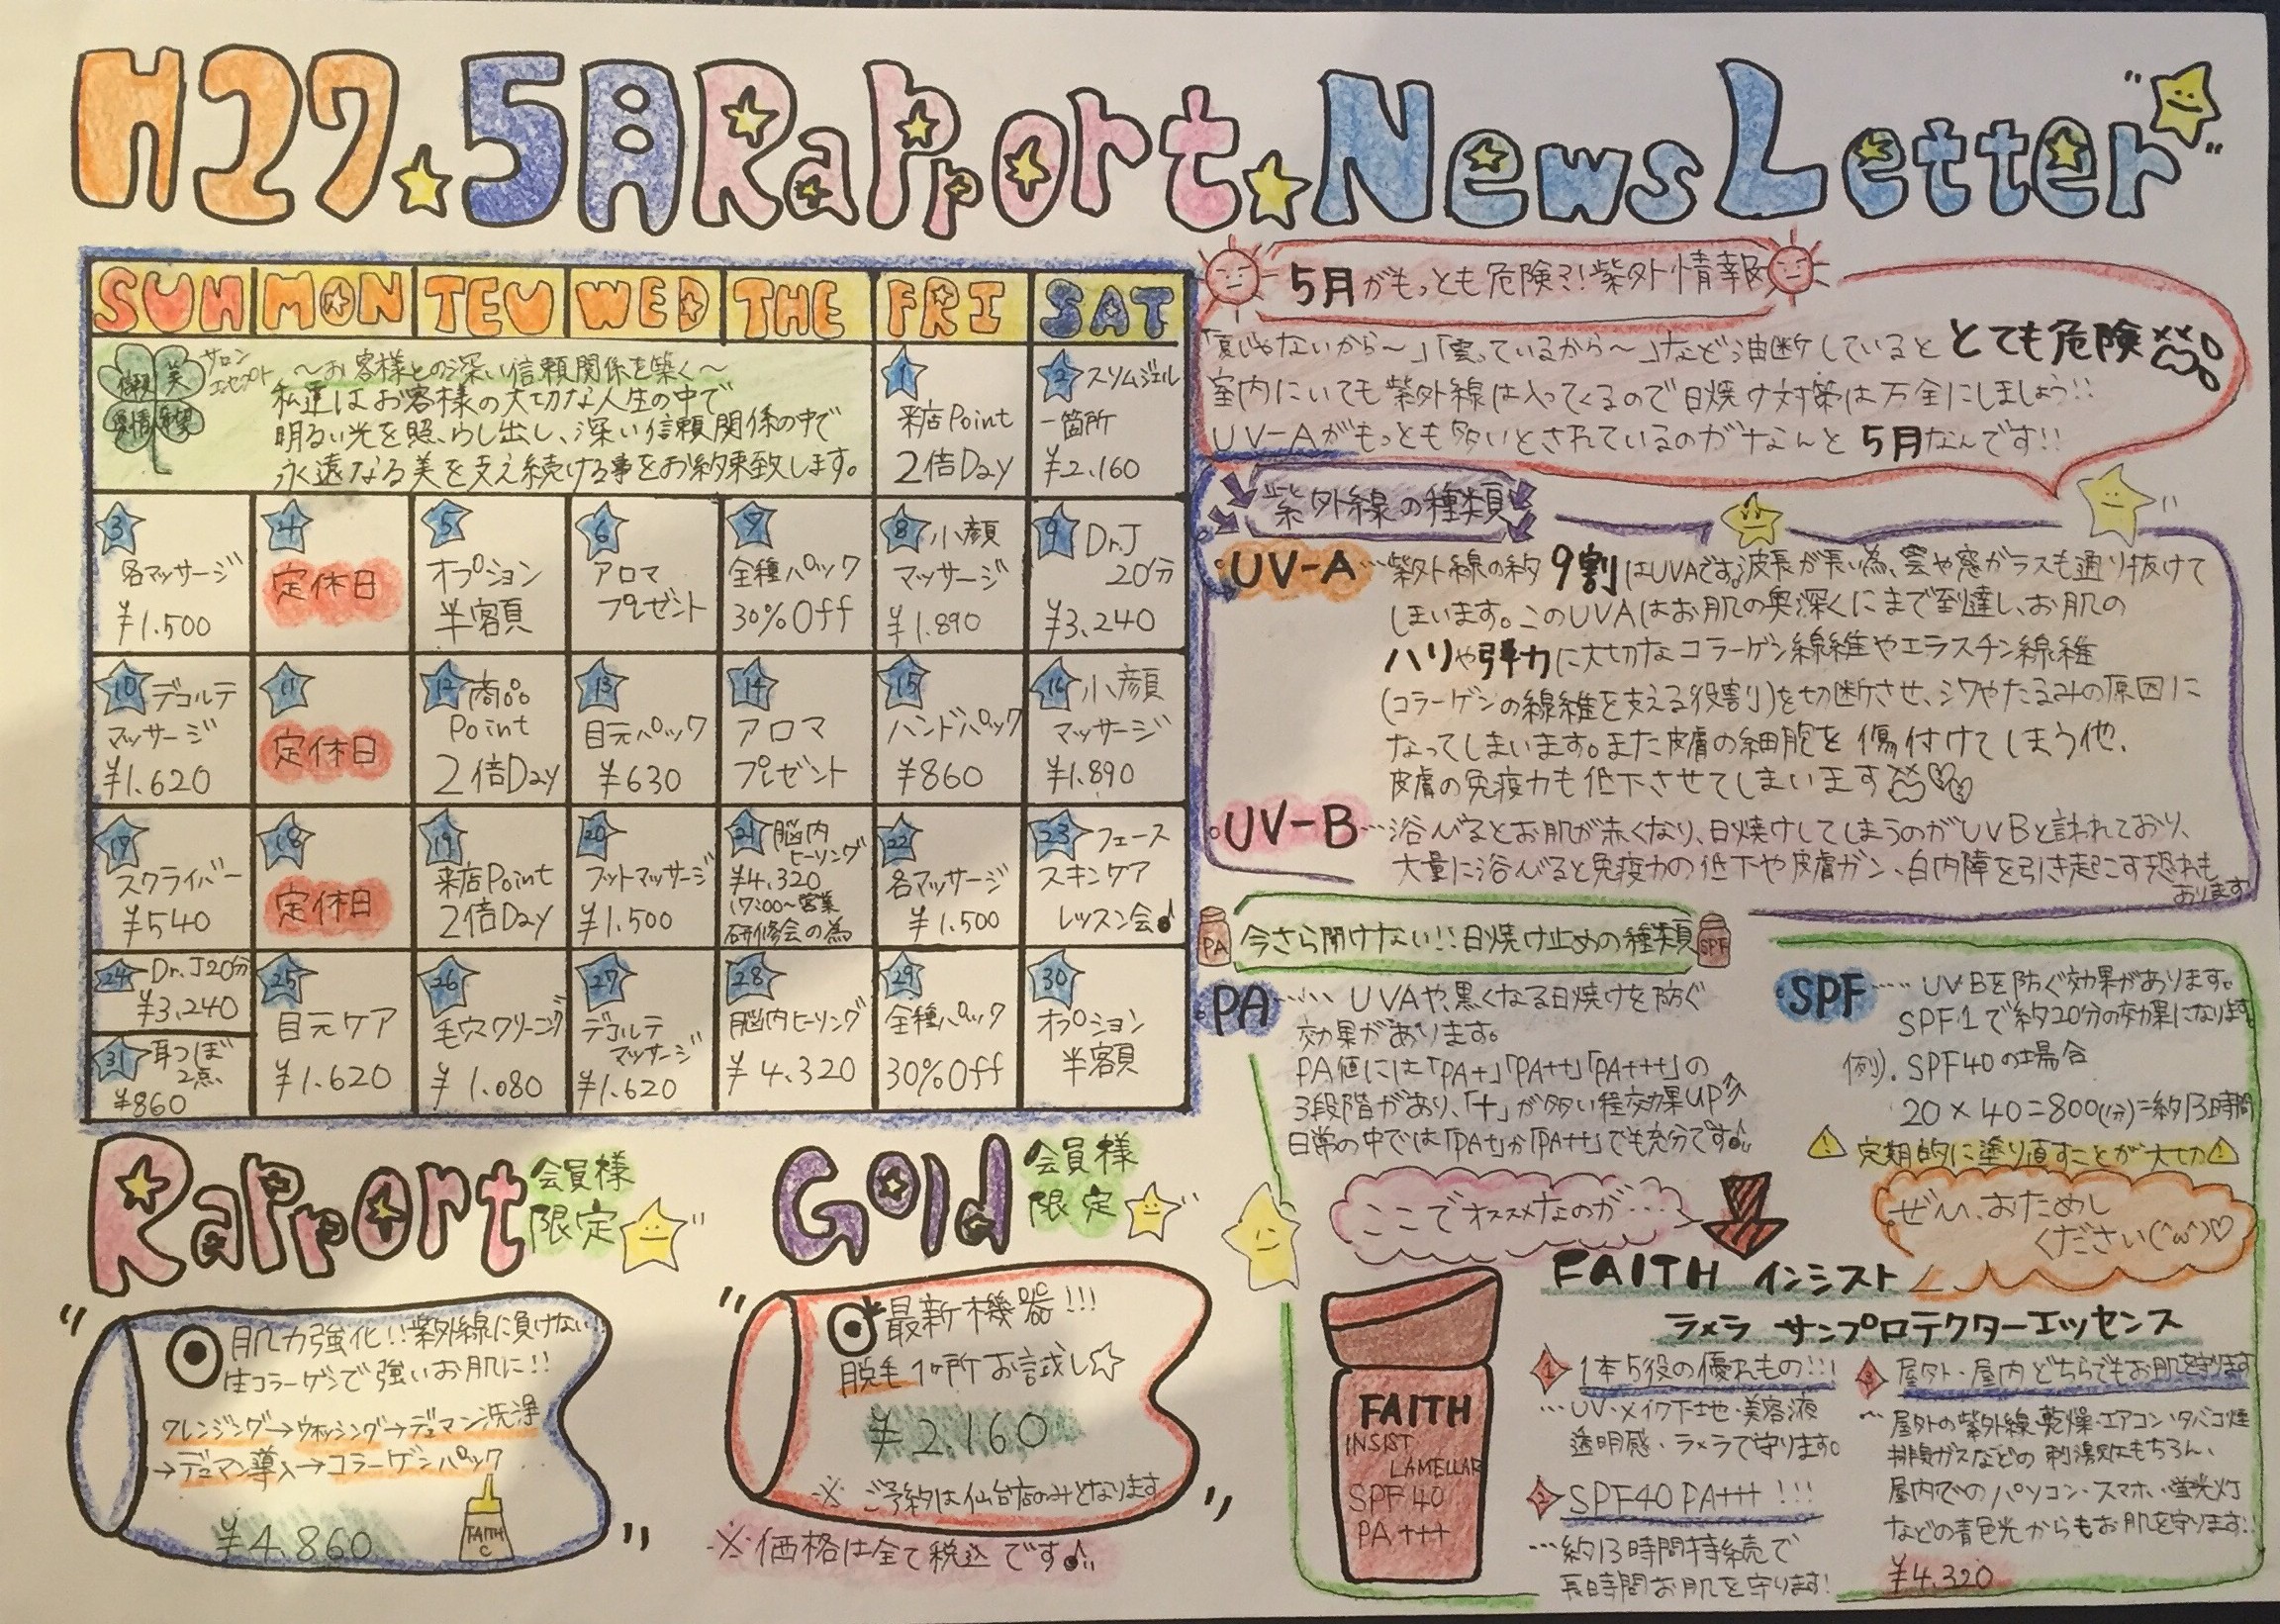 H27.5月Rapport.NewsLetter
SUN MON TEU WED THE FRI SAT
サロンコンセプト
美
～お客様との深い信頼関係を築く～
私達はお客様の大切な人生の中で
明るい光を照らし出し、深い信頼関係の中で
永遠なる美を支え続ける事をお約束致します。
1
来店Point
2倍Day
2 スリムジェル
一箇所
¥2.160
3
各マッサージ
¥1.500
4
定休日
5
オプション
半額
6
アロマ
プレゼント
7
全種パック
30%Off
8 小顔
マッサージ
¥1.890
9 Dr.J
20分
¥3.240
10 デコルテ
マッサージ
¥1.620
11
定休日
12 商品
Point
2倍Day
13
目元パック
¥630
14
アロマ
プレゼント
15
ハンドパック
¥860
16 小顔
マッサージ
¥1.890
17
スクライバー
¥540
18
定休日
19
来店Point
2倍Day
20
フットマッサージ
¥1.500
21 脳内
ヒーリング
¥4.320
17:00～営業
研修会の為
22
各マッサージ
¥1.500
23 フェース
スキンケア
レッスン会♪
24 Dr.J20分
¥3.240
25
目元ケア
¥1.620
26
毛穴クリーニング
¥1.080
27
デコルテ
マッサージ
¥1.620
28
脳内ヒーリング
¥4.320
29
全種パック
30%Off
30
オプション
半額
31 耳つぼ
2点
¥860
5月がもっとも危険?!紫外情報
「夏じゃないから～」「雲っているから～」など油断しているととても危険
室内にいても紫外線は入ってくるので日焼け対策は万全にしましょう!!
UV-Aがもっとも多いとされているのがなんと5月なんです!!
紫外線の種類
UV-A…紫外線の約9割はUVAです。波長が長い為、雲や窓ガラスも通り抜けて
しまいます。このUVAはお肌の奥深くにまで到達し、お肌の
ハリや弾力に大切なコラーゲン線維やエラスチン線維
(コラーゲンの線維を支える役割)を切断させ、シワやたるみの原因に
なってしまいます。また皮膚の細胞を傷付けてしまう他、
皮膚の免疫力も低下させてしまいます
UV-B…浴びるとお肌が赤くなり、日焼けしてしまうのがUVBと言われており、
大量に浴びると免疫力の低下や皮膚ガン、白内障を引き起こす恐れも
おります
PA 今さら聞けない!!日焼け止めの種類 SPF
PA…… UVAや、黒くなる日焼けを防ぐ
効果があります。
PA値には「PA+」「PA++」「PA+++」の
3段階があり、「+」が多い程効果UP
日常の中では「PA+」か「PA++」でも充分です♪
SPF…… UVBを防ぐ効果があります。
SPF1で約20分の効果になります
例).SPF40の場合
20×40=800(分)=約13時間
定期的に塗り直すことが大切
ここでオススメなのが…
ぜひ、おためし
ください(^ω^)♡
FAITH インシスト
ラメラ サンプロテクターエッセンス
FAITH
INSIST
LAMELLAR
SPF40
PA+++
1 1本5役の優れもの!!!
…UV・メイク下地・美容液
透明感・ラメラで守ります。
2 SPF40 PA+++ !!!
…約13時間持続で
長時間お肌を守ります!
3 屋外・屋内どちらでもお肌を守ります
屋外の紫外線・乾燥・エアコン・タバコ煙
排気ガスなどの刺激はもちろん、
屋内でのパソコン・スマホ・蛍光灯
などの青色光からもお肌を守ります!!
¥4.320
Rapport会員様
限定
肌力強化!!紫外線に負けない!
生コラーゲンで強いお肌に!!
クレンジング→ウォッシング→デュマン洗浄
→デュマン導入→コラーゲンパック
¥4.860
FAITH
C
Gold会員様
限定
最新機器!!!
脱毛1ヶ所お試し☆
¥2.160
※ご予約は仙台店のみとなります
※価格は全て税込です♪